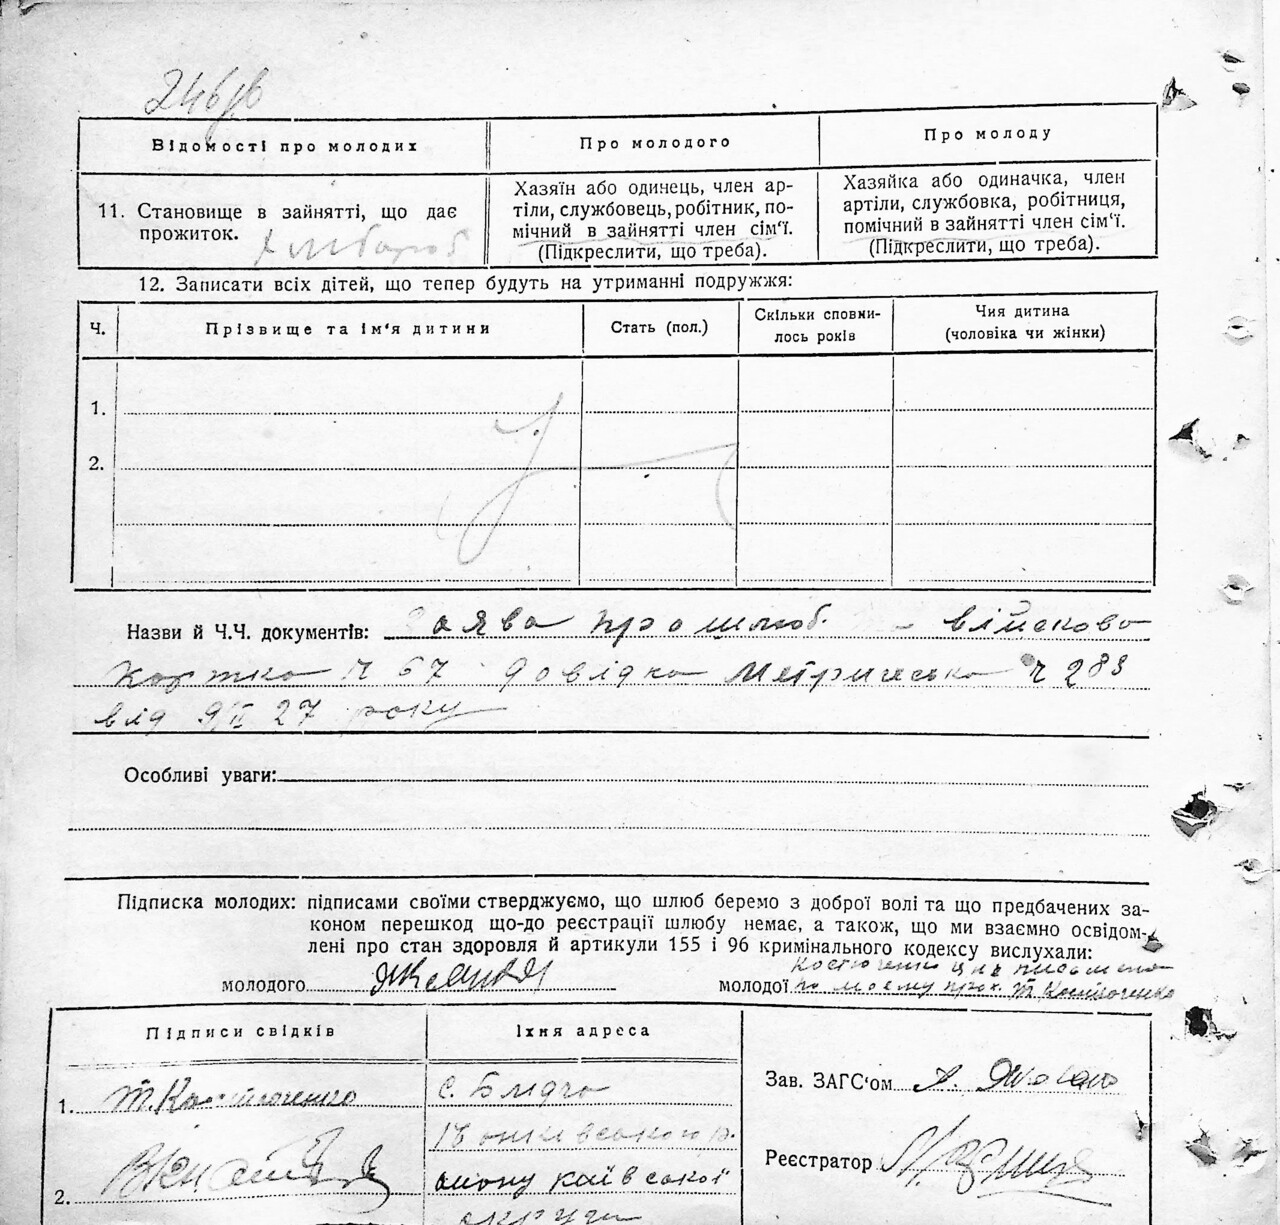 246
Відомості про молодих
Про молодого
Про молоду
11. Становище в зайнятті, що дає
прожиток.
Хлібороб
Хазяїн або одинець, член ар-
тілі, службовець, робітник, по-
мічний в зайнятті член сім'ї.
(Підкреслити, що треба).
Хазяйка або одиначка, член
артілі, службовка, робітниця,
помічний в зайнятті член сім'ї.
(Підкреслити, що треба).
12. Записати всіх дітей, що тепер будуть на утриманні подружжя:
Ч.
Прізвище та ім'я дитини
Стать (пол.)
Скільки сповни-
лось років
Чия дитина
(чоловіка чи жінки)
1.
2.
Назви й Ч.Ч. документів: Заява про шлюб військова
картка Ч 67 довідка метрическа Ч 283
від 9/II 27 року
Особливі уваги:
Підписка молодих: підписами своїми стверджуємо, що шлюб беремо з доброї волі та що предбачених за-
коном перешкод що-до реєстрації шлюбу немає, а також, що ми взаємно освідом-
лені про стан здоровля й артикули 155 і 96 кримінального кодексу вислухали:
молодого
молодої
по моему Т Костюченко
Підписи свідків
Їхня адреса
1. Т. Костюченко
с.
району київської
округи
2.
Зав. ЗАГС'ом А.
Реєстратор